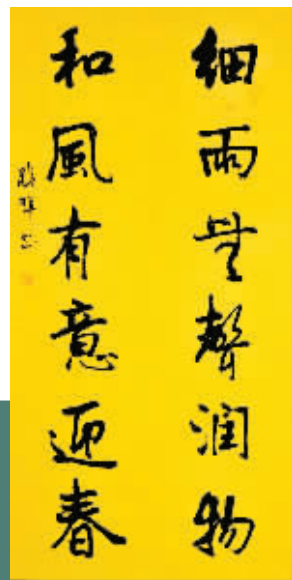 细雨無聲润物
和風有意迎春